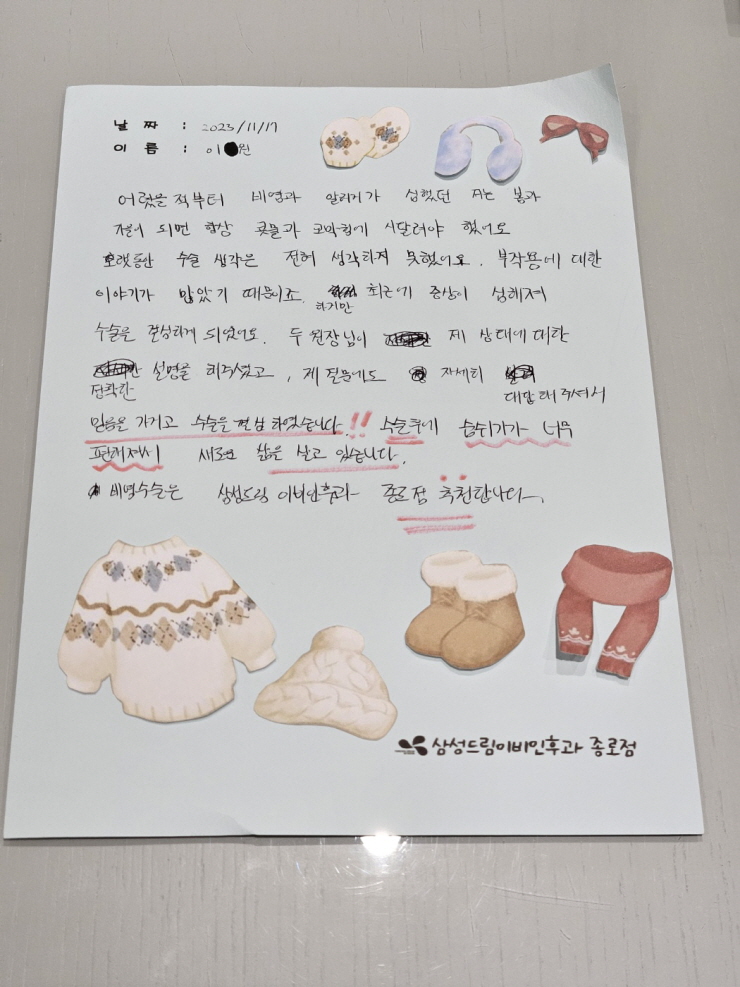 날 짜 : 2023/11/17
이 름 : 이 원
어렸을 적부터 비염과 알러지가 심했던 저는 봄과
겨울이 되면 항상 콧물과 코막힘에 시달려야 했어요
오랫동안 수술 생각은 전혀 생각하지 못했어요. 부작용에 대한
이야기가 많았기 때문이죠. 하지만 최근에 증상이 심해져
수술을 결심하게 되었어요. 두 원장님이 제 상태에 대한
정확한 설명을 해주셨고, 제 질문에도 자세히 대답해주셔서
믿음을 가지고 수술을 결심 하였습니다!! 수술후에 숨쉬기가 너무
편해져서 새로운 삶을 살고 있습니다.
비염수술은 삼성드림 이비인후과 종로점 추천합니다.
삼성드림이비인후과 종로점